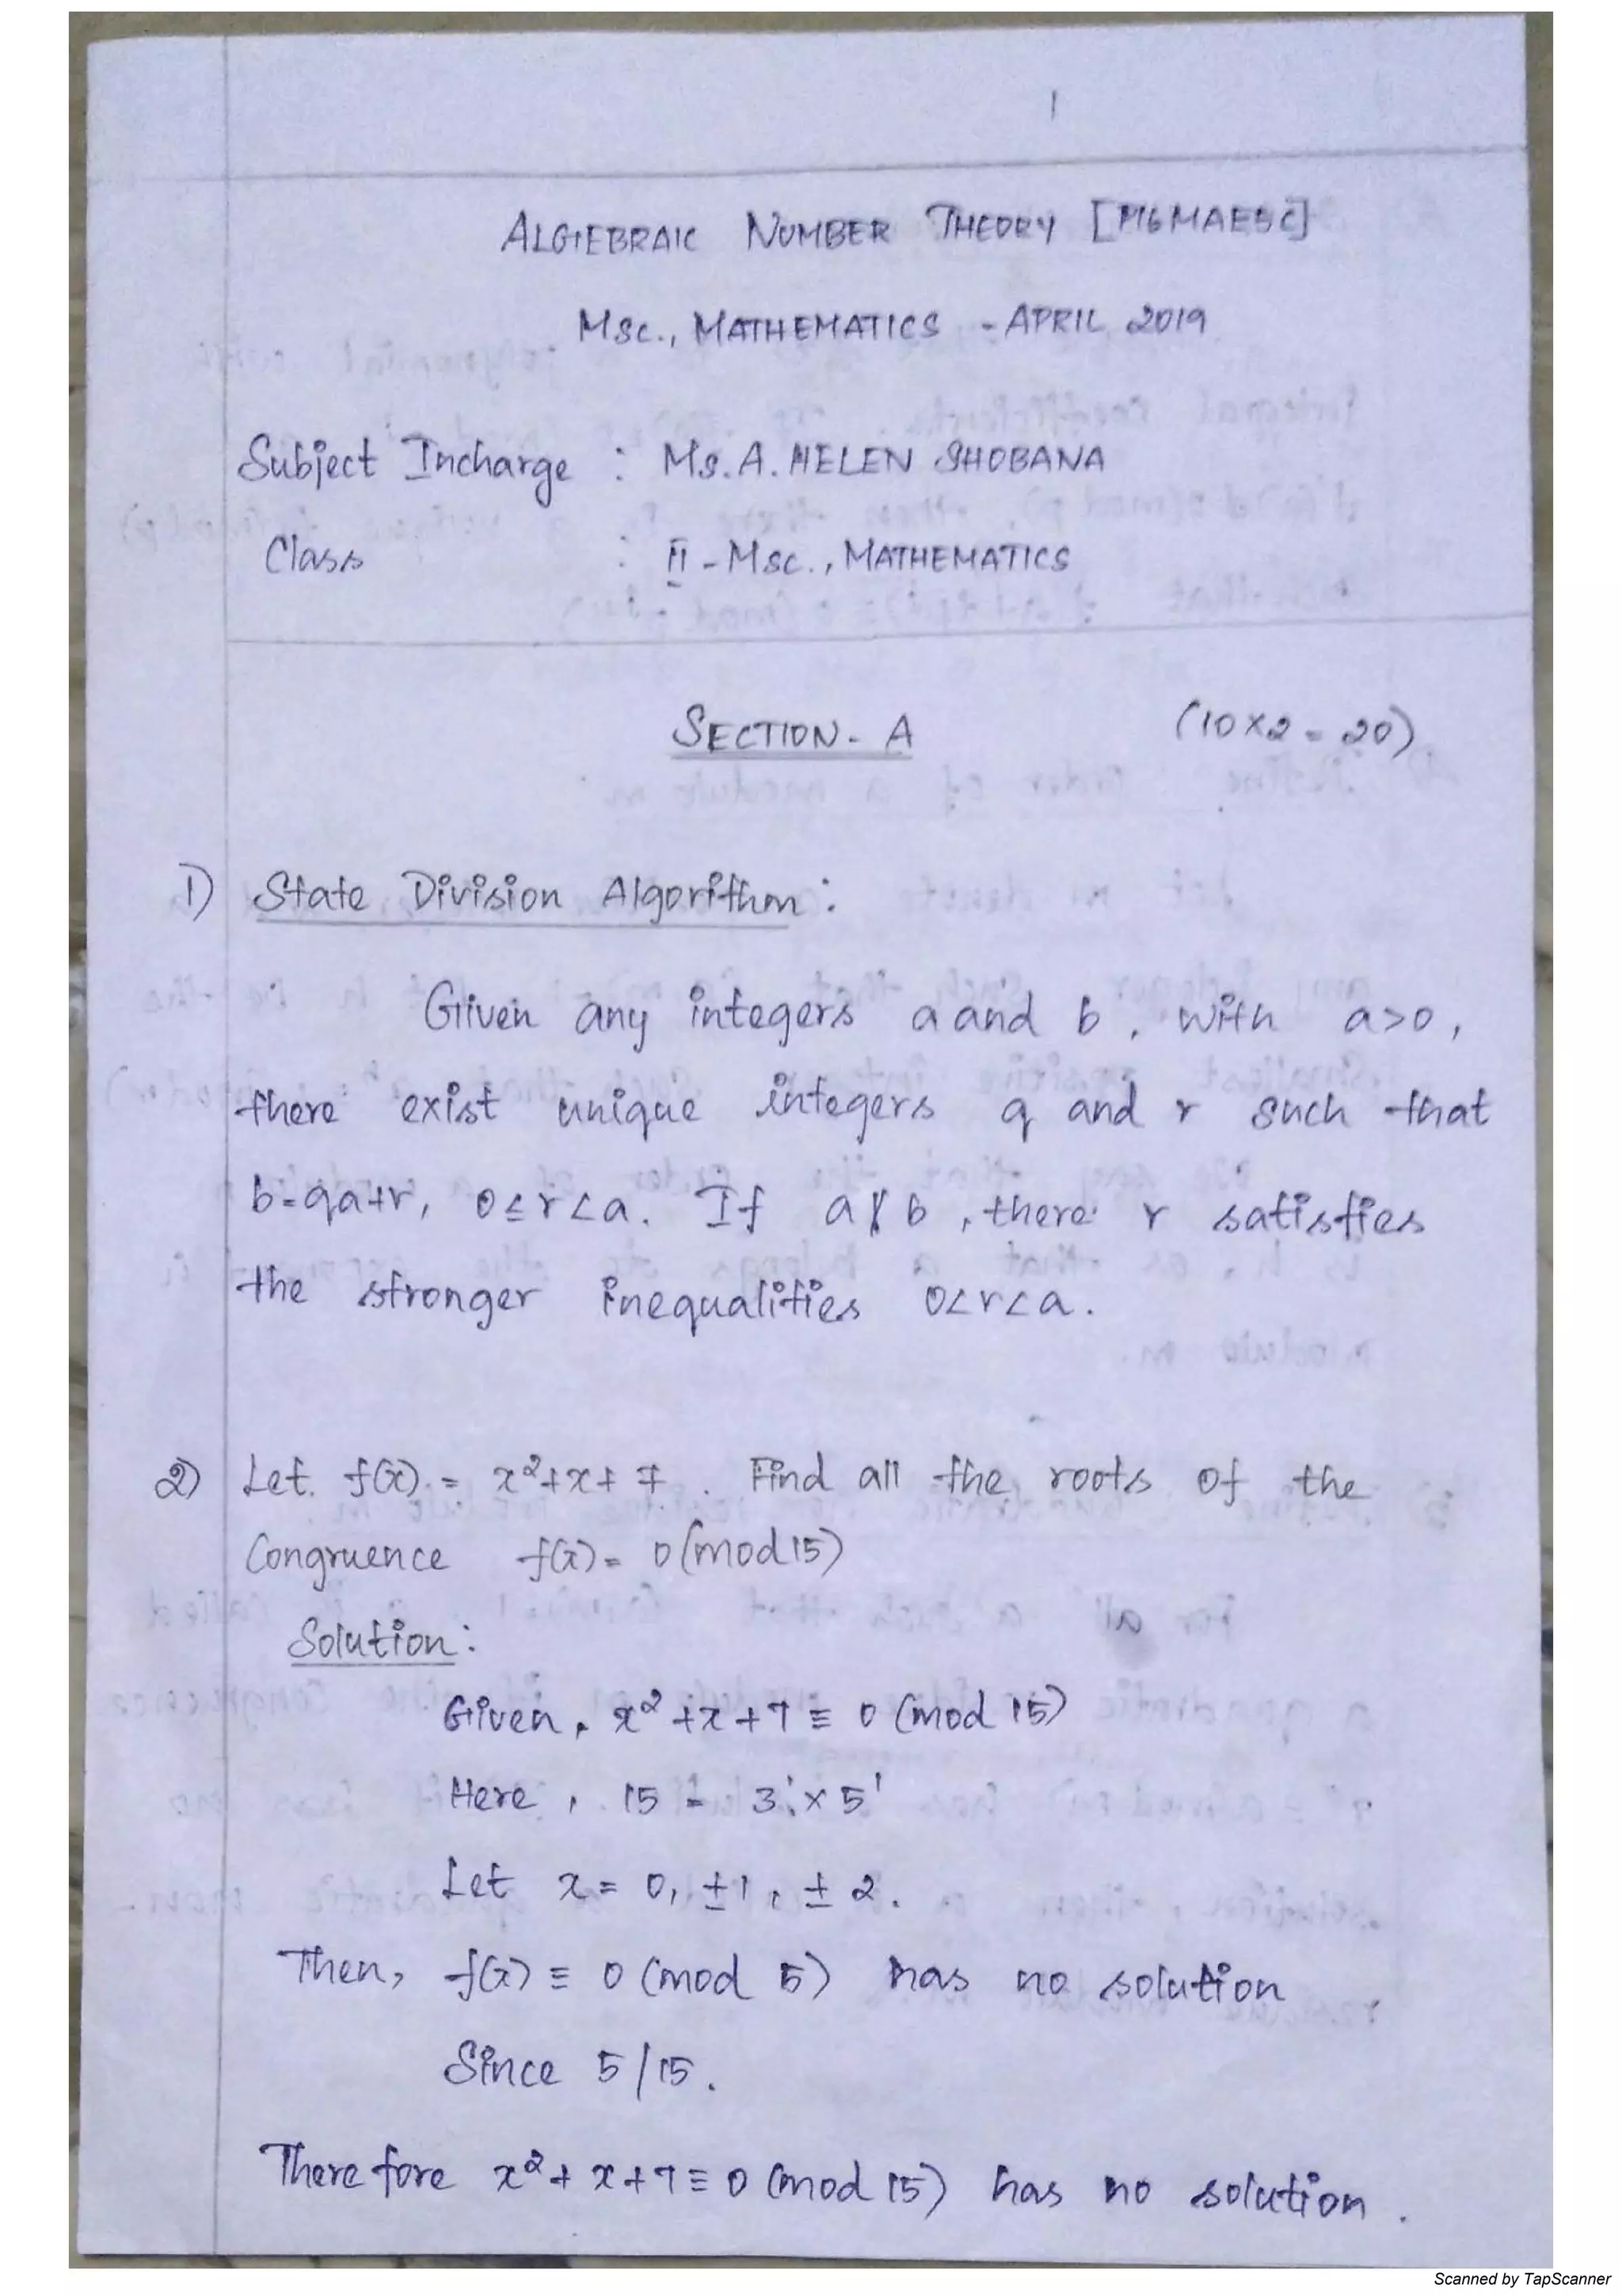 1
ALGEBRAIC NUMBER THEORY [P16MAE5C]
MSC., MATHEMATICS - APRIL 2019
Subject Incharge : Ms. A. HELEN SHOBANA
Class : II - MSC., MATHEMATICS
SECTION - A (10 x 2 = 20)
1) State Division Algorithm :
Given any integers a and b, with a>0,
there exist unique integers q and r such that
b=qa+r, 0≤r<a. If a∤b, there r satisfies
the stronger inequalities 0<r<a.
2) Let f(x) = x²+x+7. Find all the roots of the
Congruence f(x) = 0(mod 15)
Solution :
Given, x²+x+7 ≡ 0 (mod 15)
Here, 15 = 3¹ x 5¹
Let x = 0, ±1, ±2.
Then, f(x) ≡ 0 (mod 5) has no solution
Since 5/15.
Therefore x²+x+7 ≡ 0 (mod 15) has no solution.
Scanned by TapScanner